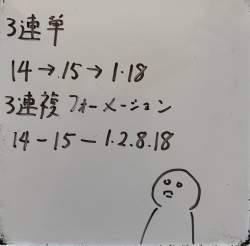 3連単
14→15→1·18
3連複 フォーメーション
14-15-1.2.8.18